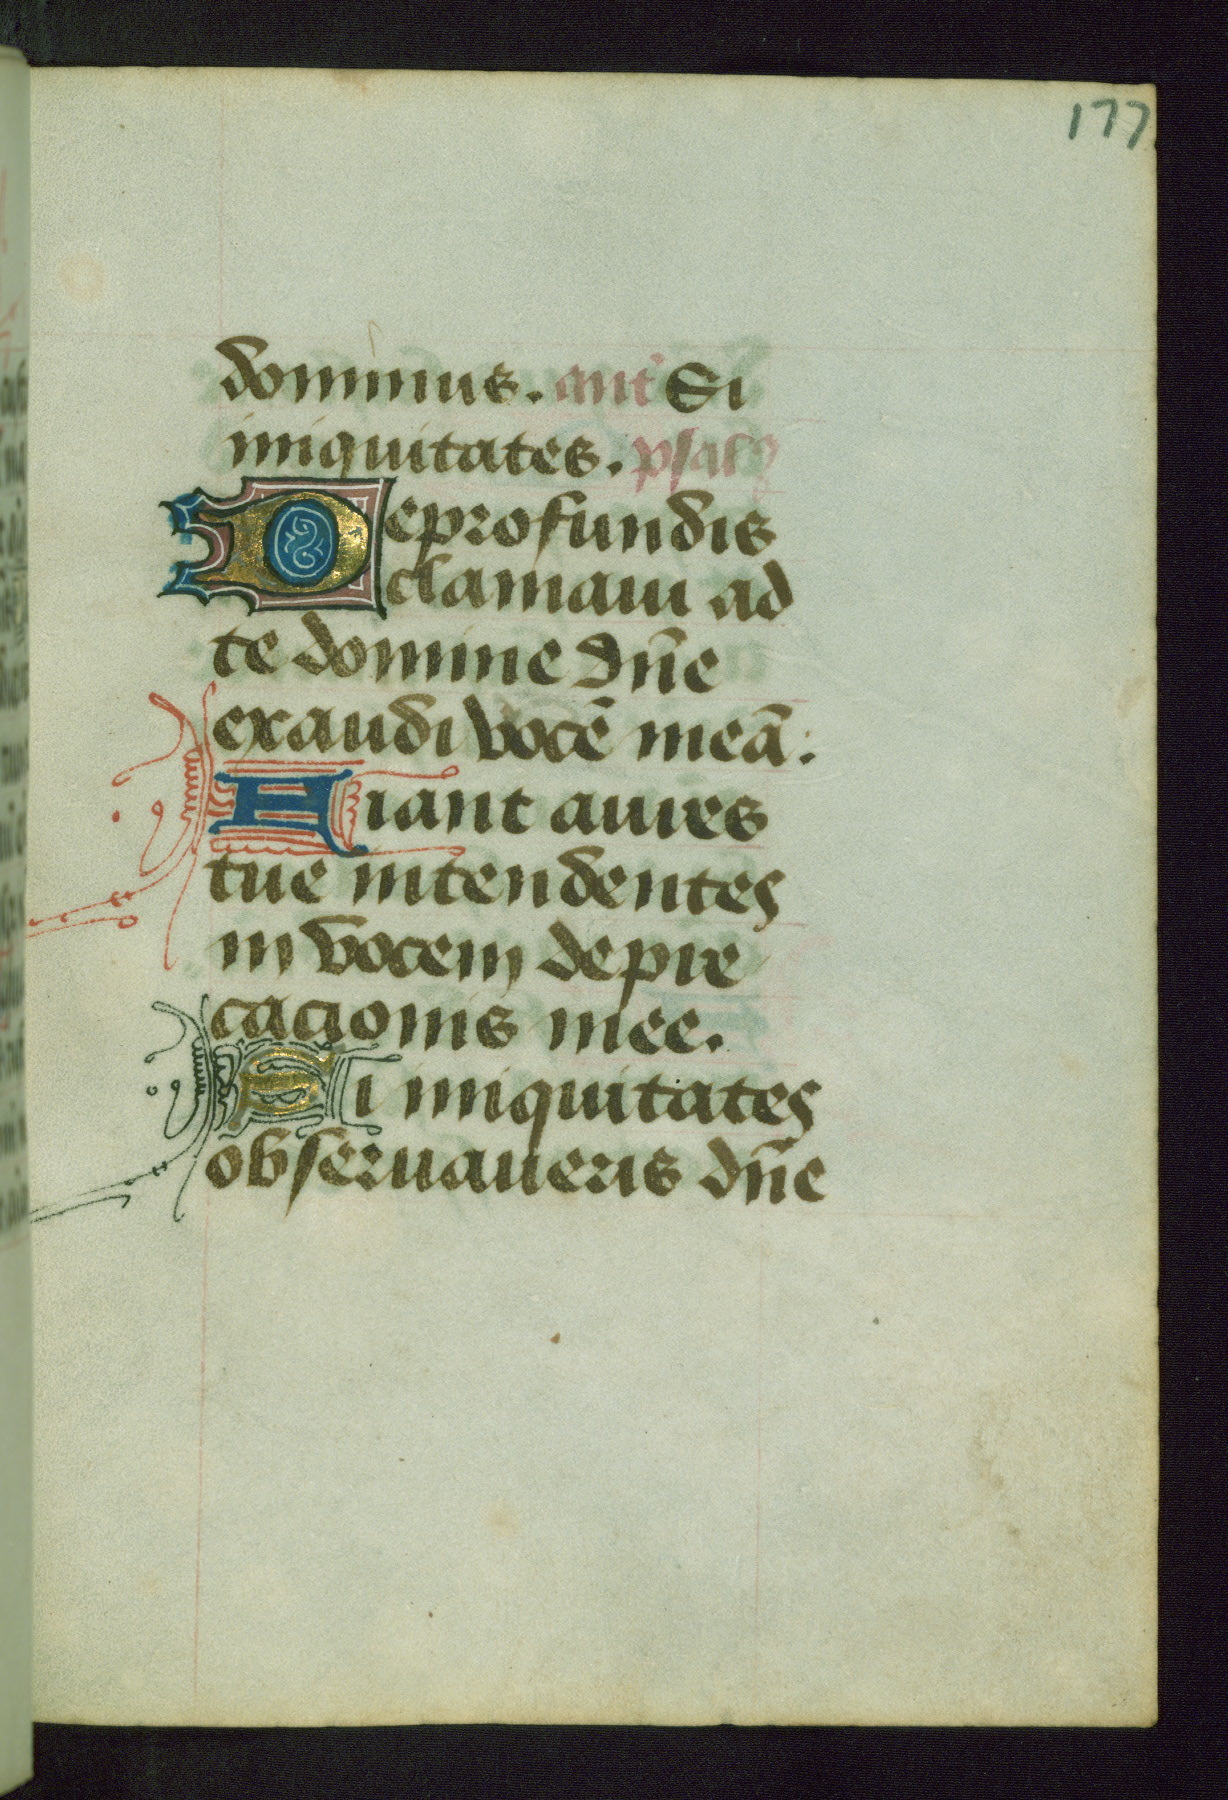 177
dominus. ant Si
iniquitates. psalꝫ
De profundis
clamaui ad
te domine dn̄e
exaudi vocē meā:
Fiant aures
tue intendentes
in vocem depre
cacionis mee.
Si iniquitates
obseruaueris dn̄e